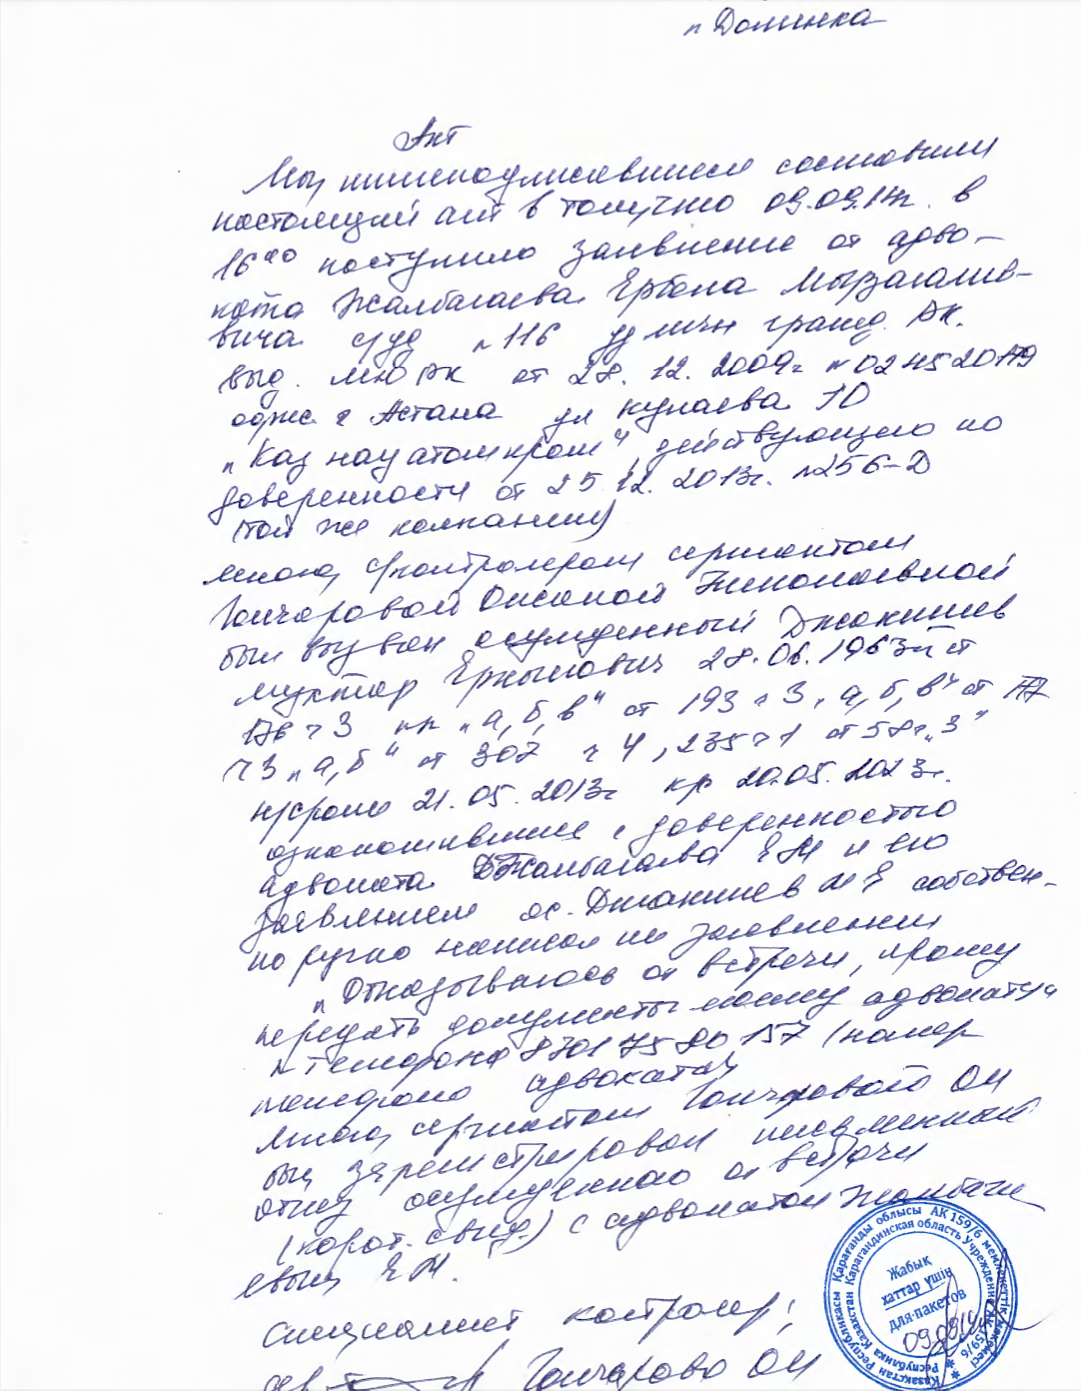 п Долинка
Акт
Мы, нижеподписавшиеся составили
настоящий акт в том, что 09.09.14г. в
16⁰⁰ поступило заявление от адво-
ката Жалбагаева Ербола Мырзагалие-
вича суд №116 уд личн гражд. РК.
выд. МЮ РК от 28.12.2009г № 024520179
адрес г Астана ул Кунаева 10
"Казнацатомпром", действующего по
доверенности от 25.12.2013г. №256-Д
той же компании)
мною, контролером сержантом
Гончаровой Оксаной Николаевной
был вызван осужденный Джакишев
Мухтар Еркынович 28.06.1963г ст
176 ч 3 пп "а, б, в" ст 193 ч 3 "а, б, в" ст 177
ч 3 "а, б" ст 307 ч 4, 235 ч 1 ст 58 ч "3"
н/срока 21.05.2013г к/с 20.05.2023г.
ознакомившись с доверенностью
адвоката Жалбагаева ЕМ и его
заявлением ос. Джакишев М Е собствен-
но ручно написал на заявлении
"Отказываюсь от встречи, прошу
передать документы моему адвокату"
№ телефона 8701 75 80 157 (номер
телефона адвоката)
мною, сержантом Гончаровой ОН
был зарегистрирован письменный
отказ осужденного от встречи
(корот. свид.) с адвокатом Жалбага
евым ЕМ.
Специалист контролер;
Гончарова ОН
Қазақстан Республикасы Қарағанды облысы АК 159/6 мемлекеттік мекемесі
Республика Казахстан Карагандинская область Учреждение АК 159/6
Жабық
хаттар үшін
для пакетов
09.09.14